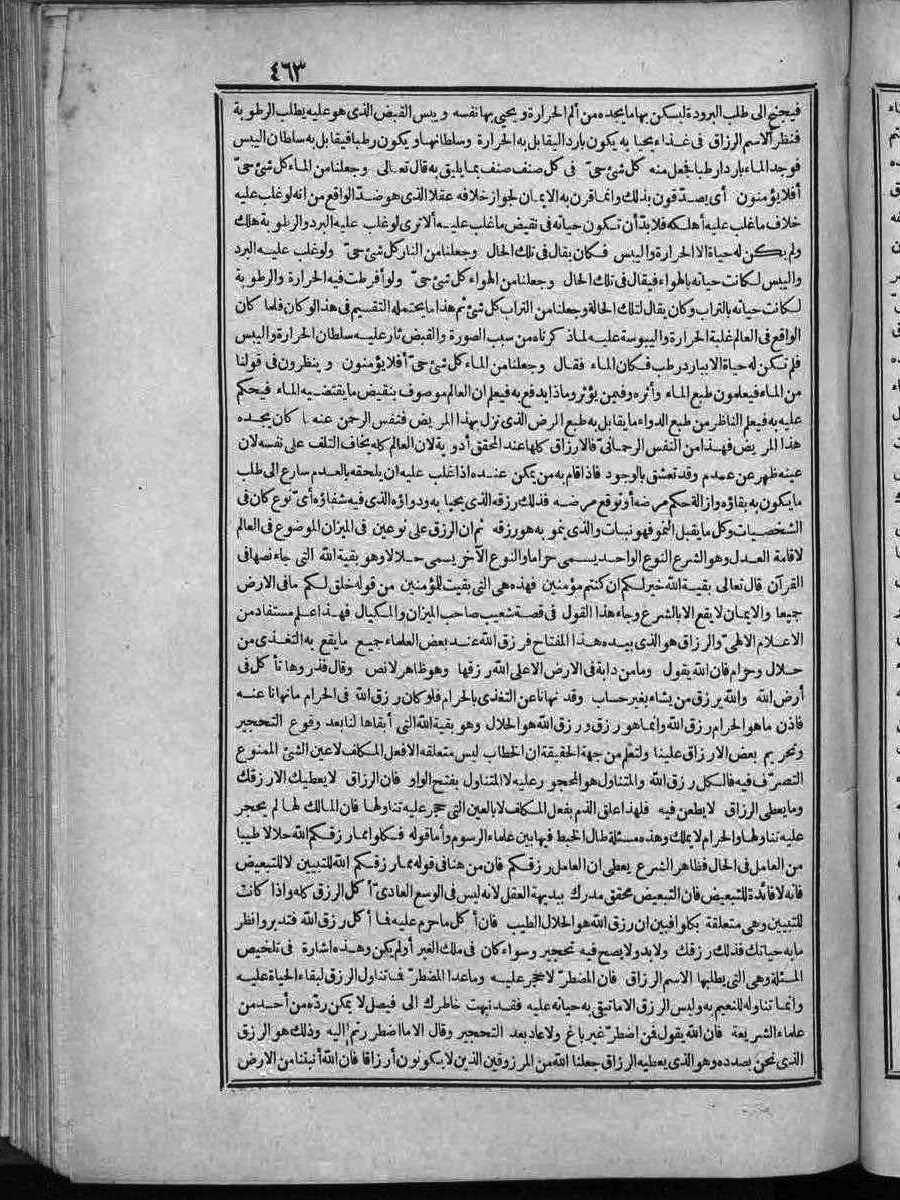 ٤٦٣
فيجنح الى طلب البرودة ليسكن بها ما يجده من ألم الحرارة ويحيى بها نفسه ويبس القبض الذى هو عليه يطلب الرطوبة
فنظر الاسم الرزاق فى غذاء يحيا به يكون بارد اليقابل به الحرارة وسلطانها ويكون رطبا فيقابل به سلطان اليبس
فوجد الماء باردا رطبا فجعل منه كل شئ حىّ فى كل صنف صنف بما يليق به قال تعالى وجعلنا من الماء كل شئ حىّ
أفلا يؤمنون أى يصدّقون بذلك وانما قرن به الايمان لجواز خلافه عقلا الذى هو ضدّ الواقع من انه لو غلب عليه
خلاف ما غلب عليه أهلكه فلا بدّ أن تكون حياته فى نقيض ما غلب عليه ألا ترى لو غلب عليه البرد والرطوبة هلك
ولم يكن له حياة الا الحرارة واليبس فكان يقال فى تلك الحال وجعلنا من النار كل شئ حىّ ولو غلب عليه البرد
واليبس لكانت حياته بالهواء فيقال فى تلك الحال وجعلنا من الهواء كل شئ حىّ ولو أفرطت فيه الحرارة والرطوبة
لكانت حياته بالتراب وكان يقال لتلك الحالة وجعلنا من التراب كل شئ ثم هذا ما يحتمله التقسيم فى هذا لو كان فلما كان
الواقع فى العالم غلبة الحرارة واليبوسة عليه لما ذكرناه من سبب الصورة والقبض ثار عليه سلطان الحرارة واليبس
فلم تكن له حياة الا ببارد رطب فكان الماء فقال وجعلنا من الماء كل شئ حىّ أفلا يؤمنون وينظرون فى قولنا
من الماء فيعلمون طبع الماء وأثره وفيمن يؤثر وماذا يدفع به فيعلم ان العالم موصوف بنقيض ما يقتضيه الماء فيحكم
عليه به فيعلم الناظر من طبع الدواء ما يقابل به طبع المرض الذى نزل بهذا المريض فتنفس الرحمن عنه ما كان يجده
هذا المريض فهذا من النفس الرحمانىّ فالارزاق كلها عند المحقق أدوية لان العالم كله يخاف التلف على نفسه لان
عينه ظهر عن عدم وقد تعشق بالوجود فاذا قام به من يمكن عنده اذا غلب عليه ان يلحقه بالعدم سارع الى طلب
ما يكون به بقاؤه وازالة حكم مرضه أو توقع مرضه فذلك رزقه الذى يحيا به ودواؤه الذى فيه شفاؤه أىّ نوع كان فى
الشخصيات وكل ما يقبل النمو فهو نبات والذى ينمو به هو رزقه ثم ان الرزق على نوعين فى الميزان الموضوع فى العالم
لاقامة العدل وهو الشرع النوع الواحد يسمى حراما والنوع الآخر يسمى حلالا وهو بقية الله التى جاء نصها فى
القرآن قال تعالى بقية الله خير لكم ان كنتم مؤمنين فهذه هى التى بقيت للمؤمنين من قوله خلق لكم ما فى الارض
جميعا والايمان لا يقع الا بالشرع وجاء هذا القول فى قصة شعيب صاحب الميزان والمكيال فهذا علم مستفاد من
الاعلام الالهىّ والرزاق هو الذى بيده هذا المفتاح فرزق الله عند بعض العلماء جميع ما يقع به التغذى من
حلال وحرام فان الله يقول وما من دابة فى الارض الا على الله رزقها وهو ظاهر لا نص وقال فذروها تأكل فى
أرض الله والله يرزق من يشاء بغير حساب وقد نهانا عن التغذى بالحرام فلو كان رزق الله فى الحرام ما نهانا عنه
فاذن ما هو الحرام رزق الله وانما هو رزق ورزق الله هو الحلال وهو بقية الله التى أبقاها لنا بعد وقوع التحجير
وتحريم بعض الارزاق علينا ولتعلم من جهة الحقيقة ان الخطاب ليس متعلقه الا فعل المكلف لا عين الشئ الممنوع
التصرّف فيه فالكل رزق الله والمتناول هو المحجور عليه لا المتناول بفتح الواو فان الرزاق لا يعطيك الا رزقك
وما يعطى الرزاق لا يطعن فيه فلهذا علق الذم بفعل المكلف لا بالعين التى حجر عليه تناولها فان المالك لها لم يحجر
عليه تناولها والحرام لا يملك وهذه مسئلة طال الخبط فيها بين علماء الرسوم وأما قوله فكلوا مما رزقكم الله حلالا طيبا
من العامل فى الحال فظاهر الشرع يعطى ان العامل رزقكم فان من هنا فى قوله مما رزقكم الله للتبيين لا للتبعيض
فانه لا فائدة للتبعيض فان التبعيض محقق مدرك ببديهة العقل لانه ليس فى الوسع العادىّ أكل الرزق كله واذا كانت
للتبيين وهى متعلقة بكلوا فبين ان رزق الله هو الحلال الطيب فان أكل ما حرم عليه فما أكل رزق الله فتدبر وانظر
ما به حياتك فذلك رزقك ولا بد ولا يصح فيه تحجير وسواء كان فى ملك الغير أو لم يكن وهذه اشارة فى تلخيص
المسئلة وهى التى يطلبها الاسم الرزاق فان المضطرّ لا حجر عليه وما عدا المضطرّ فما تناول الرزق لبقاء الحياة عليه
وانما تناوله للنعيم به وليس الرزق الا ما تبقى به حياته عليه فقد نبهت خاطرك الى فيصل لا يمكن ردّه من أحد من
علماء الشريعة فان الله يقول فمن اضطرّ غير باغ ولا عاد بعد التحجير وقال الا ما اضطررتم اليه وذلك هو الرزق
الذى نحن بصدده وهو الذى يعطيه الرزاق جعلنا الله من المرزوقين الذين لا يكونون أرزاقا فان الله أنبتنا من الارض